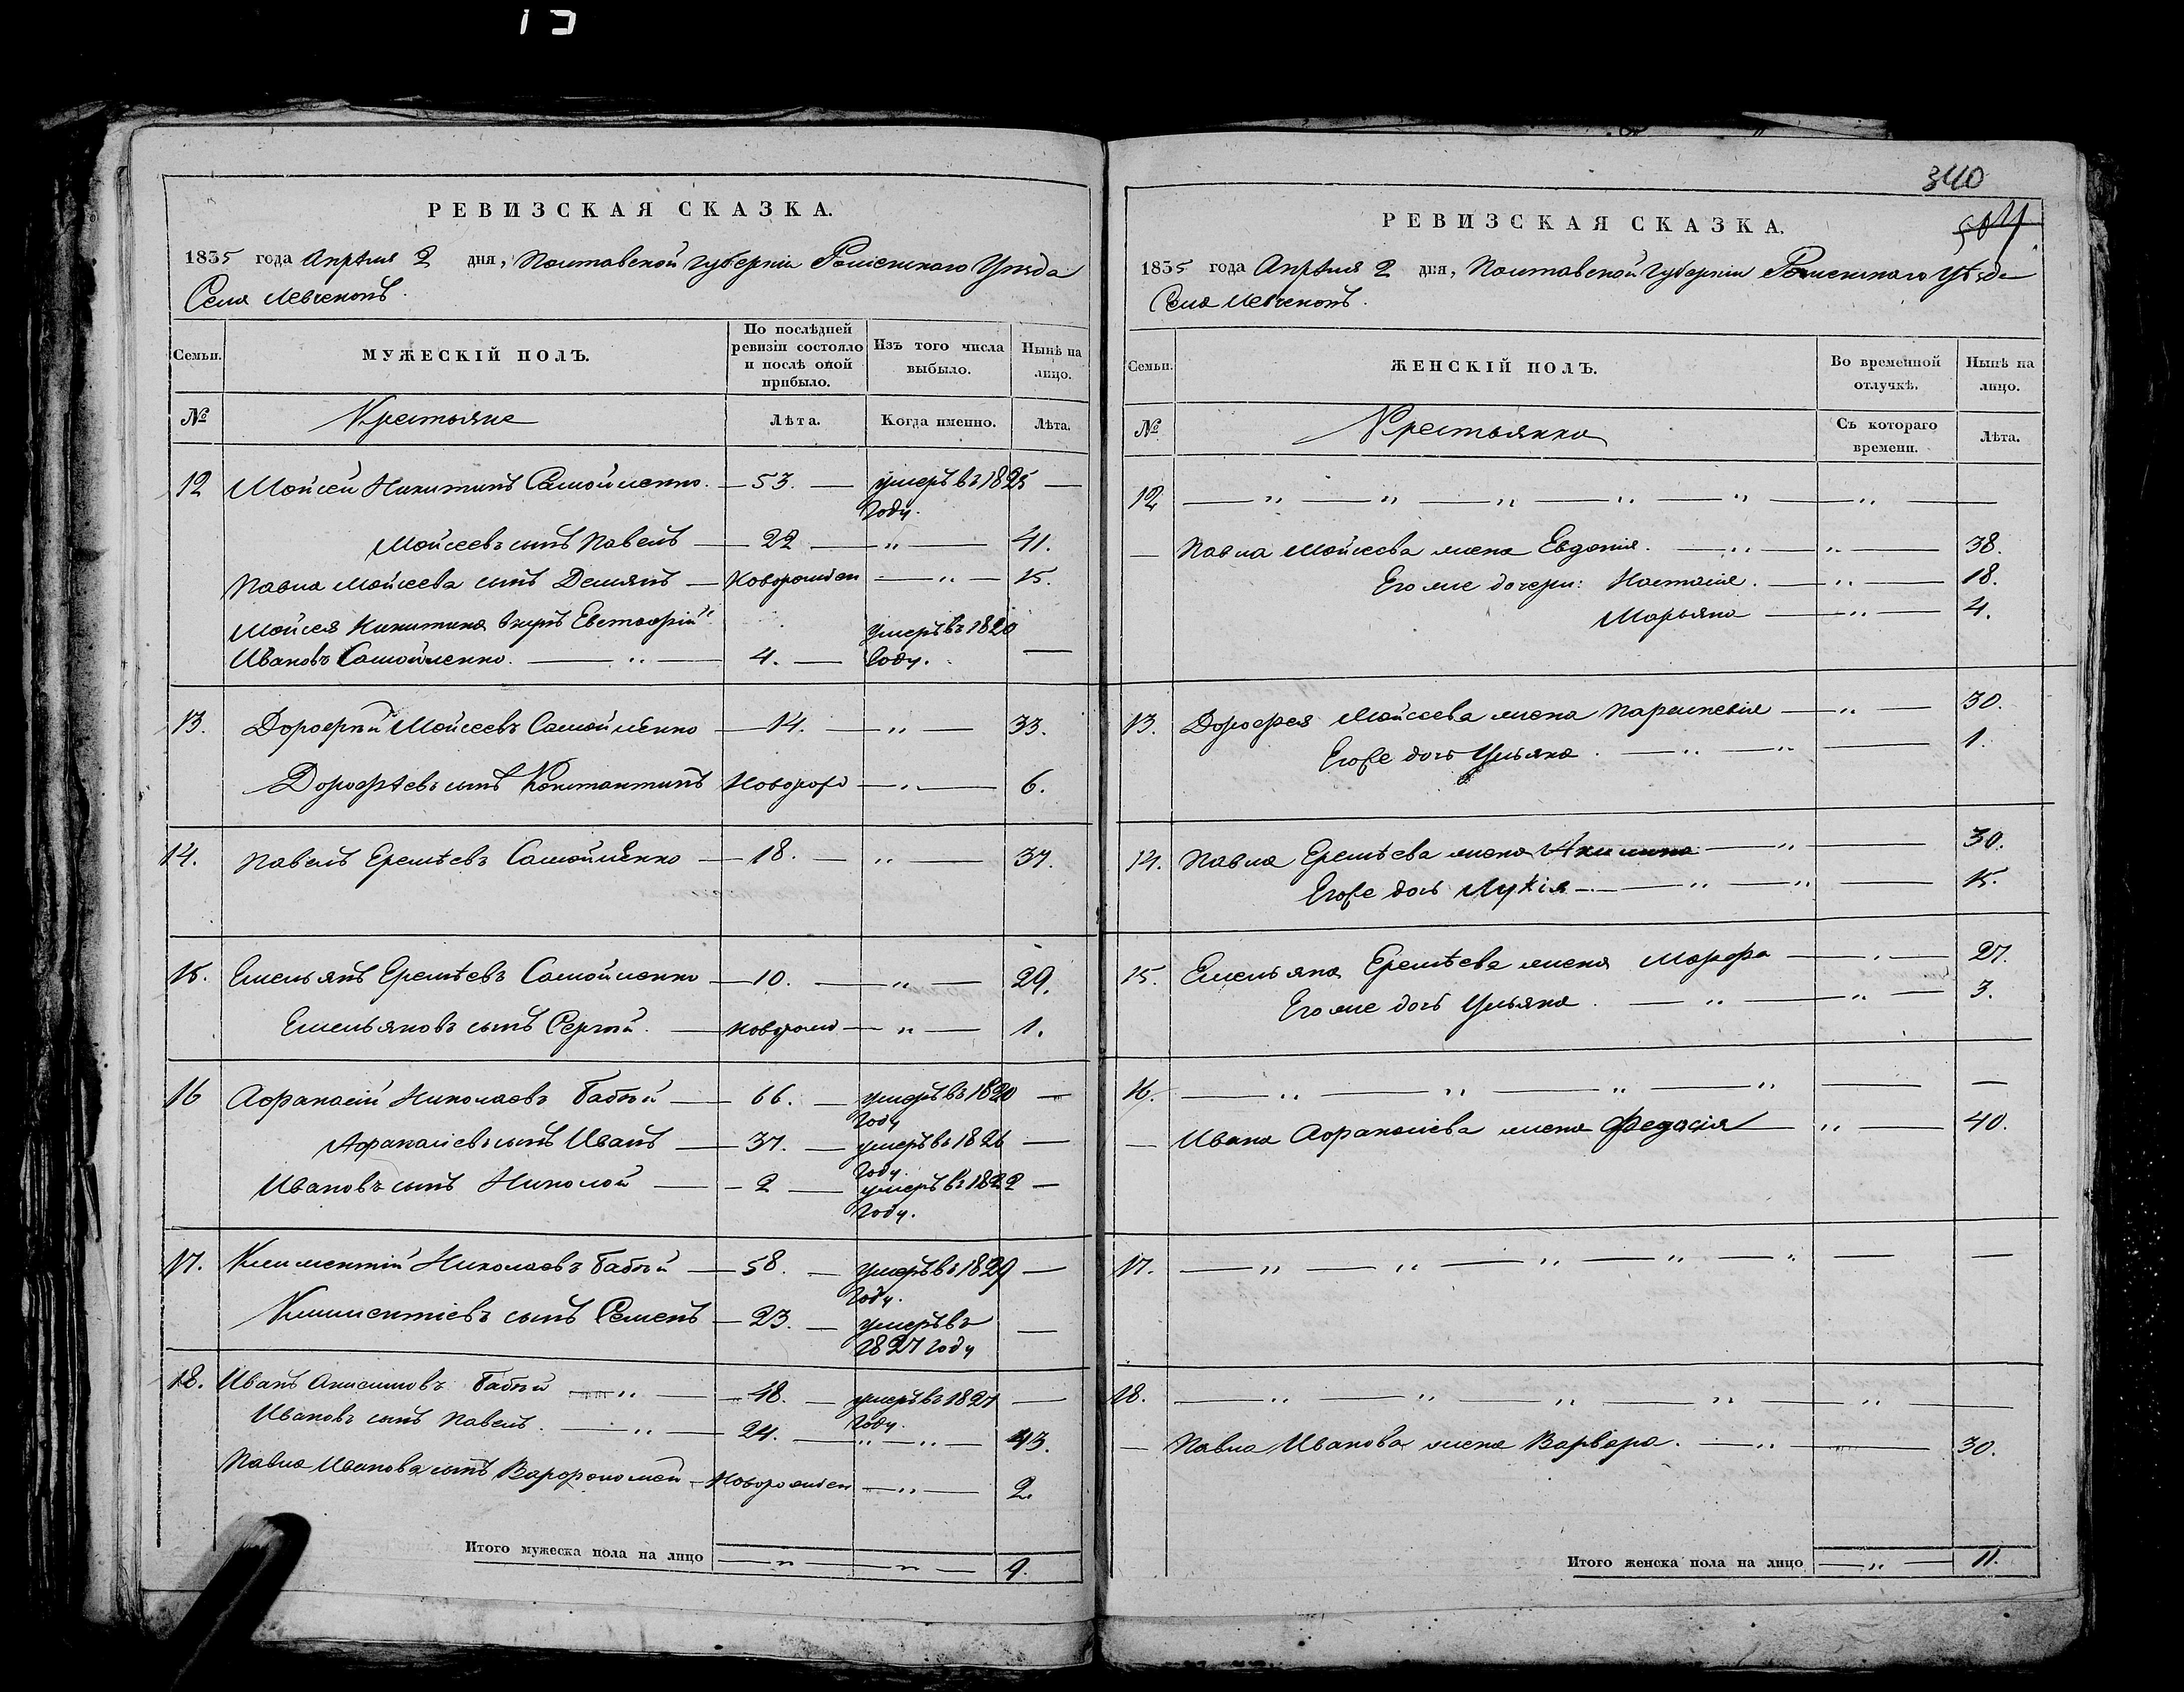 РЕВИЗСКАЯ СКАЗКА.
1835 года Апрѣля 2 дня, Полтавской Губерніи Роменскаго Уѣзда
Села Левченокъ.
Семьи. МУЖЕСКІЙ ПОЛЪ. По послѣдней ревизіи состояло и послѣ оной прибыло. Изъ того числа выбыло. Нынѣ на лицо.
№ Крестьяне Лѣта. Когда именно. Лѣта.
12 Мойсей Никитинъ Самойленко. — 53. — умеръ въ 1825 году. —
Мойсеевъ сынъ Павелъ — 22 — " — 41.
Павла Мойсеева сынъ Демянъ — Новорожден — " — 15.
Мойсея Никитина внукъ Евстафій
Ивановъ Самойленко. — " — 4. — Умеръ въ 1820 году. —
13. Дорофѣй Мойсеевъ Самойленко — 14. — " — 33.
Дорофѣевъ сынъ Константинъ Новорож — " — 6.
14. Павелъ Еремѣевъ Самойленко — 18. — " 37.
15. Емельянъ Еремѣевъ Самойленко — 10. — " — 29.
Емельяновъ сынъ Сергѣй. — новорожд — " — 1.
16 Афанасій Николаевъ Бабій — 66. — умеръ въ 1820 году —
Афанасіевъ сынъ Иванъ — 37. — умеръ въ 1826 году. —
Ивановъ сынъ Николой — 2 — умеръ въ 1822 году. —
17. Климентій Николаевъ Бабій — 58. — умеръ въ 1829 году. —
Климентіевъ сынъ Семенъ — 23. — умеръ въ 1827 году —
18. Иванъ Анисимовъ Бабій — " — 48. — умеръ въ 1827 году. —
Ивановъ сынъ Павелъ. — " — 24. — " — " — 43.
Павла Иванова сынъ Варфоломей — Новорожден — " — 2.
Итого мужеска пола на лицо — " — " — 9.
340
РЕВИЗСКАЯ СКАЗКА.
1835 года Апрѣля 2 дня, Полтавской Губерніи Роменскаго Уѣзда
Села Левченокъ.
Семьи. ЖЕНСКІЙ ПОЛЪ. Во временной отлучкѣ. Нынѣ на лицо.
№ Крестьянки Съ котораго времени. Лѣта.
12. — " — " — " — " — " — " —
— Павла Мойсеева жена Евдокія. — " " — 38.
Его же дочери: Настасія. — " — 18.
Марьяна — " — 4.
13. Дорофея Мойсеева жена Параскевія — " — 30.
Егоже дочь Ульяна. — " — " — 1.
14. Павла Еремѣева жена Акилина — " — 30.
Егоже дочь Лукія — " — " — 15.
15. Емельяна Еремѣева жена Марфа — " — 27.
Его же дочь Ульяна. — " — " — 3.
16. — " — " — " — " — —
— Ивана Афанасіева жена Федосія — " — 40.
17. — " — " — " — " — " — —
18. — " — " — " — " — " —
— Павла Иванова жена Варвара. — " — 30.
Итого женска пола на лицо — " — 11.